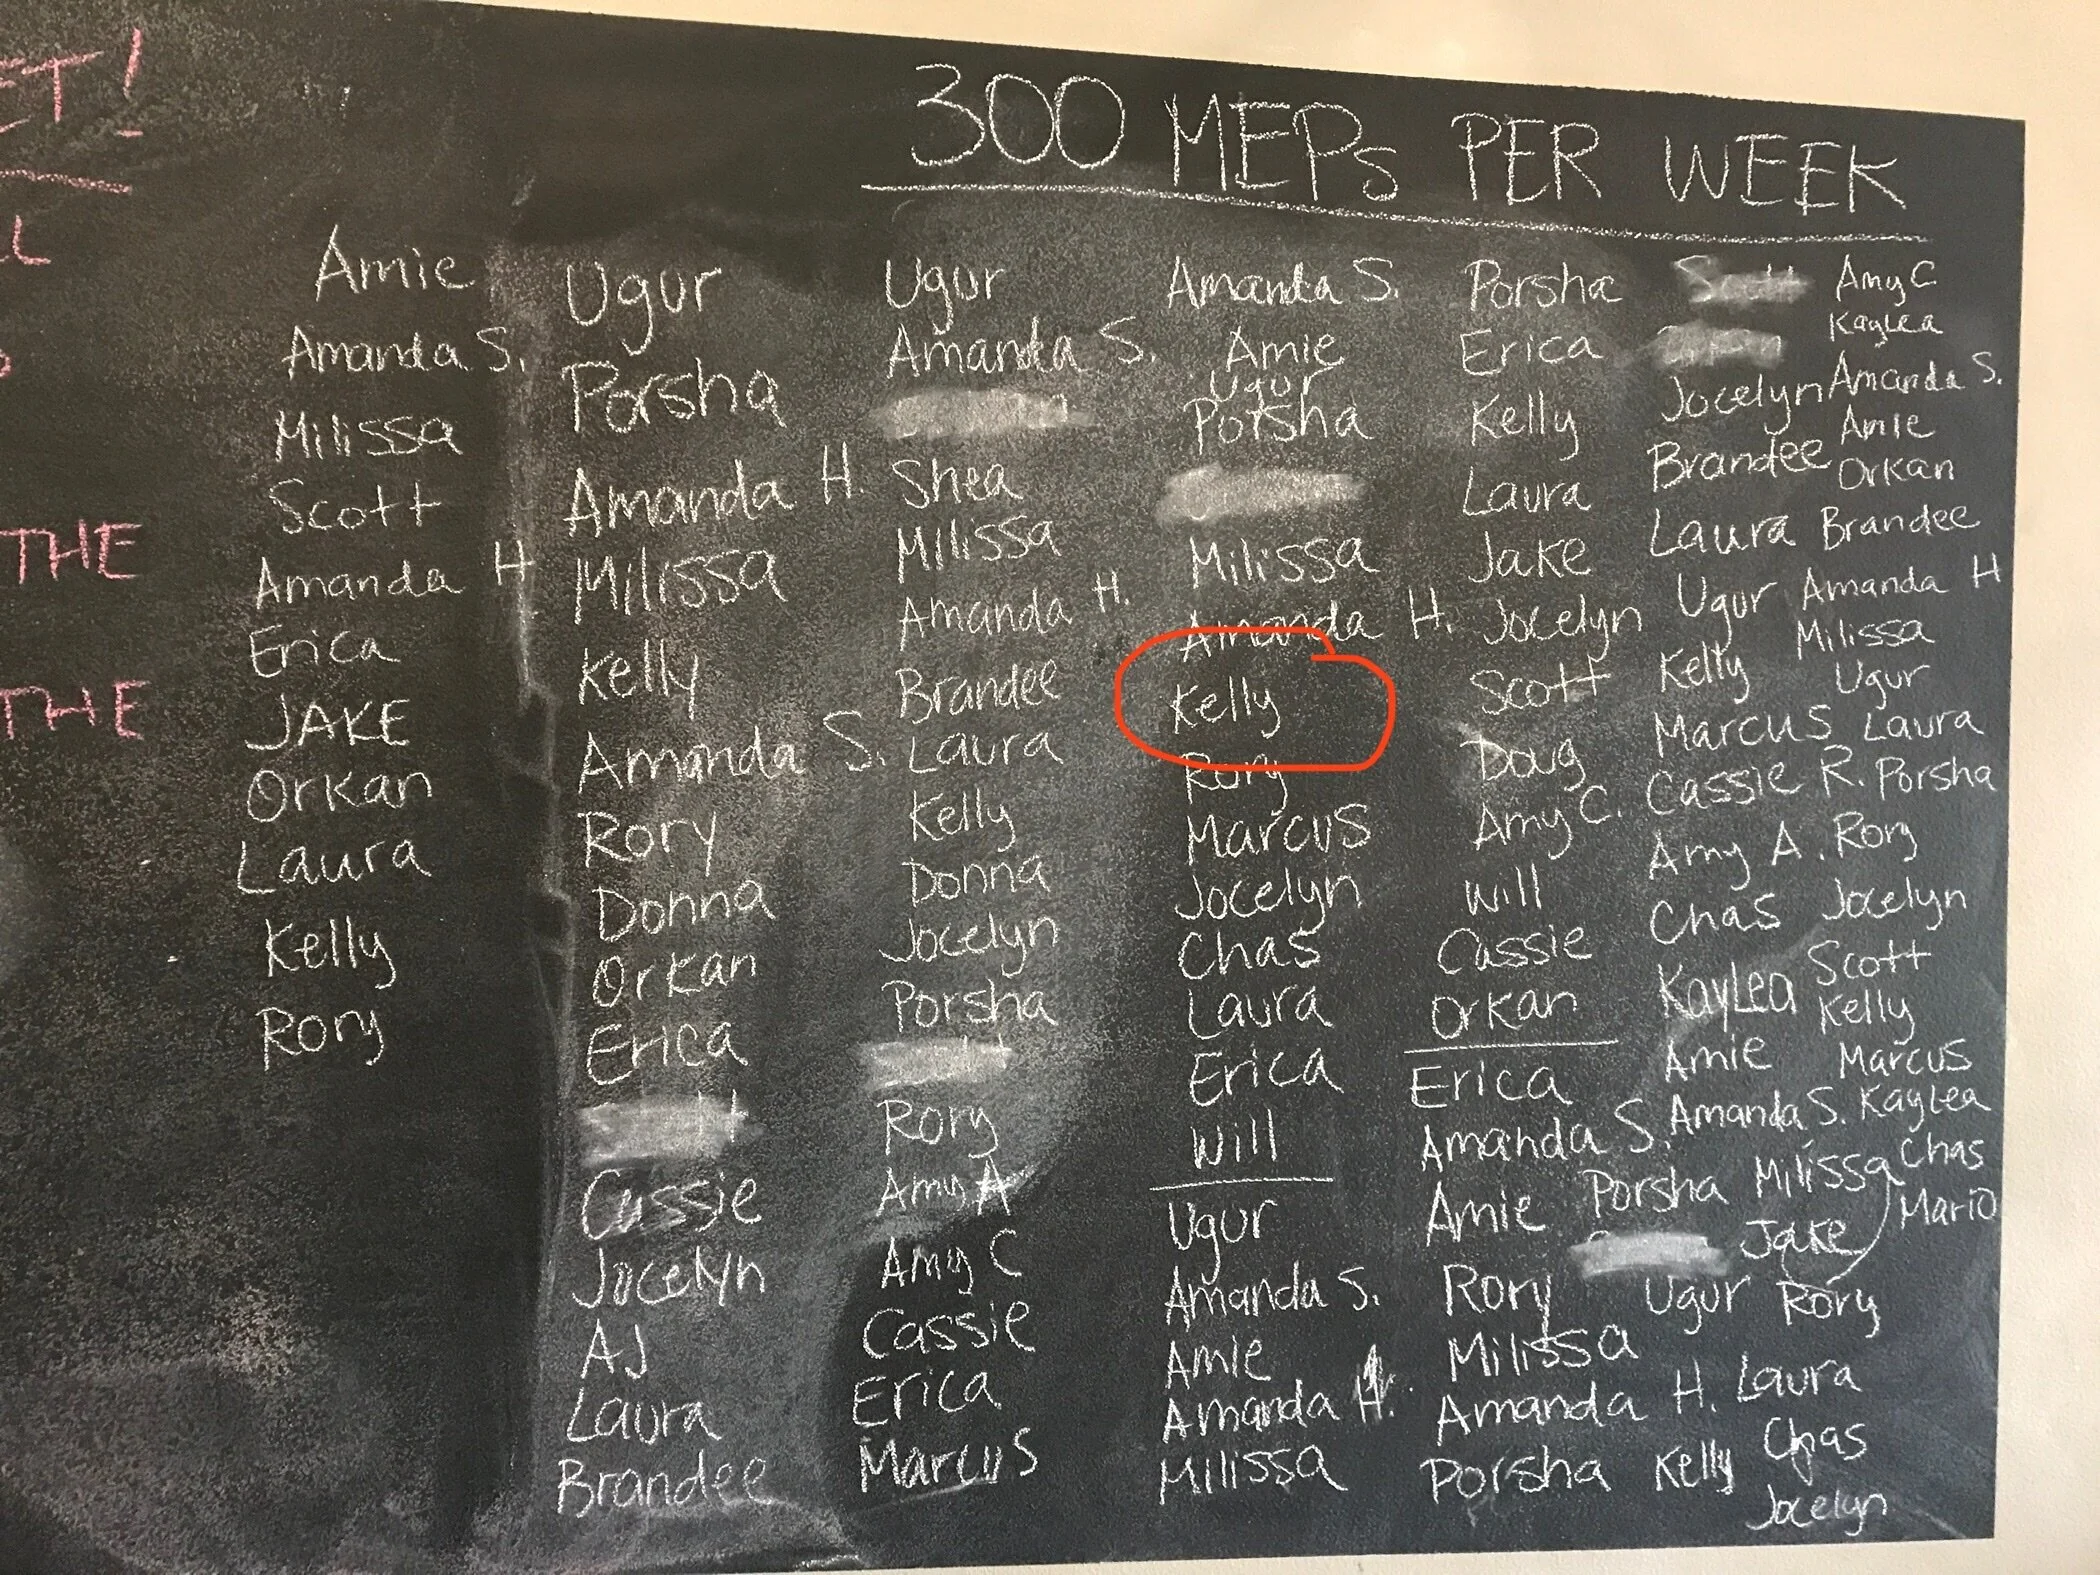 ET!
L
THE
THE
300 MEPs PER WEEK
Amie
Amanda S.
Milissa
Scott
Amanda H
Erica
JAKE
Orkan
Laura
Kelly
Rory
Ugur
Porsha
Amanda H.
Milissa
Kelly
Amanda S.
Rory
Donna
Orkan
Erica
Cassie
Jocelyn
AJ
Laura
Brandee
Ugur
Amanda S.
Shea
Milissa
Amanda H.
Brandee
Laura
Kelly
Donna
Jocelyn
Porsha
Rory
Amy A
Amy C
Cassie
Erica
Marcus
Amanda S.
Amie
Ugur
Porsha
Milissa
Amanda H.
Kelly
Rory
Marcus
Jocelyn
Chas
Laura
Erica
Will
Ugur
Amanda S.
Amie
Amanda H.
Milissa
Porsha
Erica
Kelly
Laura
Jake
Jocelyn
Scott
Doug
Amy C.
Will
Cassie
Orkan
Erica
Amanda S.
Amie
Rory
Milissa
Amanda H.
Porsha
Scott
Jocelyn
Brandee
Laura
Ugur
Kelly
Marcus
Cassie R.
Amy A.
Chas
Kaylea
Amie
Amanda S.
Porsha
Ugur
Kelly
Amy C
Kaylea
Amanda S.
Amie
Orkan
Brandee
Amanda H
Milissa
Ugur
Laura
Porsha
Rory
Jocelyn
Scott
Kelly
Marcus
Kaylea
Chas
Mario
Milissa
Jake
Rory
Laura
Chas
Jocelyn